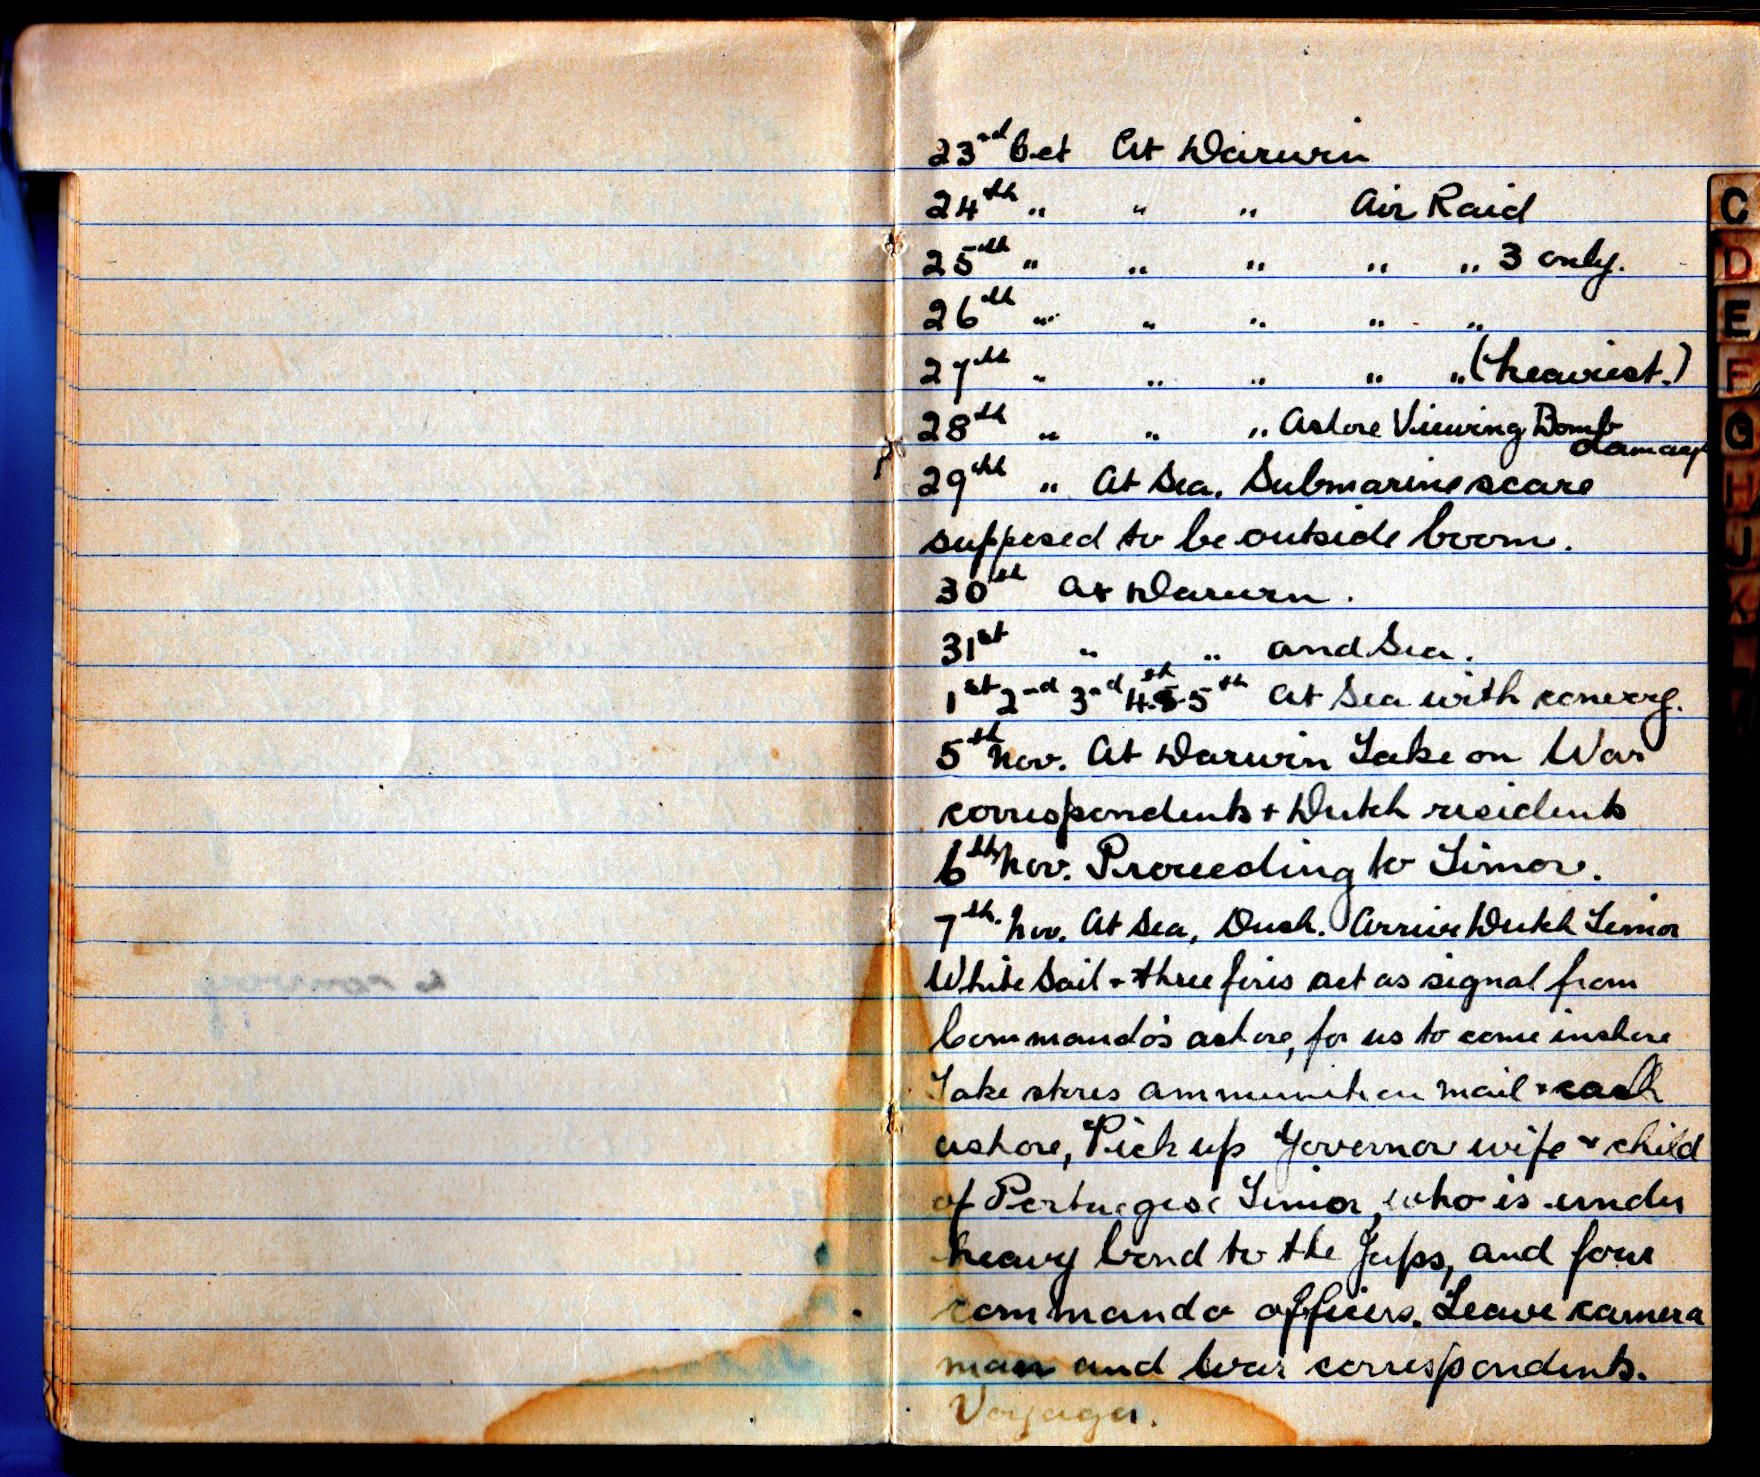 23rd Oct At Darwin
24th " " " Air Raid
25th " " " " " 3 only.
26th " " " " "
27th " " " " " (heaviest.)
28th " " " Ashore Viewing Bomb
damage
29th " At Sea. Submarine scare
supposed to be outside boom.
30th At Darwin.
31st " " and Sea.
1st 2nd 3rd 4th 5th At Sea with convoy.
5th Nov. At Darwin Take on War
correspondents + Dutch residents
6th Nov. Proceeding to Timor.
7th. Nov. At Sea, Dusk. Arrive Dutch Timor
White Sail + three fires set as signal from
Commando's ashore, for us to come inshore
Take stores ammunition mail + cash
ashore, Pick up Governor wife + child
of Portugese Timor, who is under
heavy bond to the Japs, and four
commando officers. Leave camera
man and War correspondents.
Voyager.
C
D
E
F
G
H
J
K